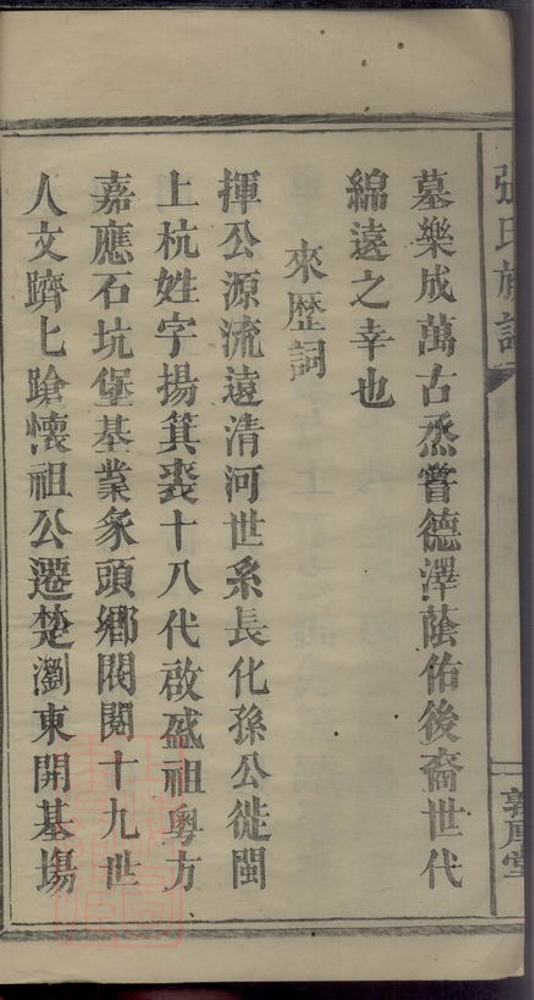 張氏族譜
敦厚堂
墓樂成萬古烝甞德澤蔭佑後裔世代
綿遠之幸也
來歷詞
揮公源流遠清河世系長化孫公徙閩
上杭姓字揚箕裘十八代啟盛祖粵方
嘉應石坑堡基業象頭鄉閥閱十九世
人文躋匕蹌懷祖公遷楚瀏東開基塲